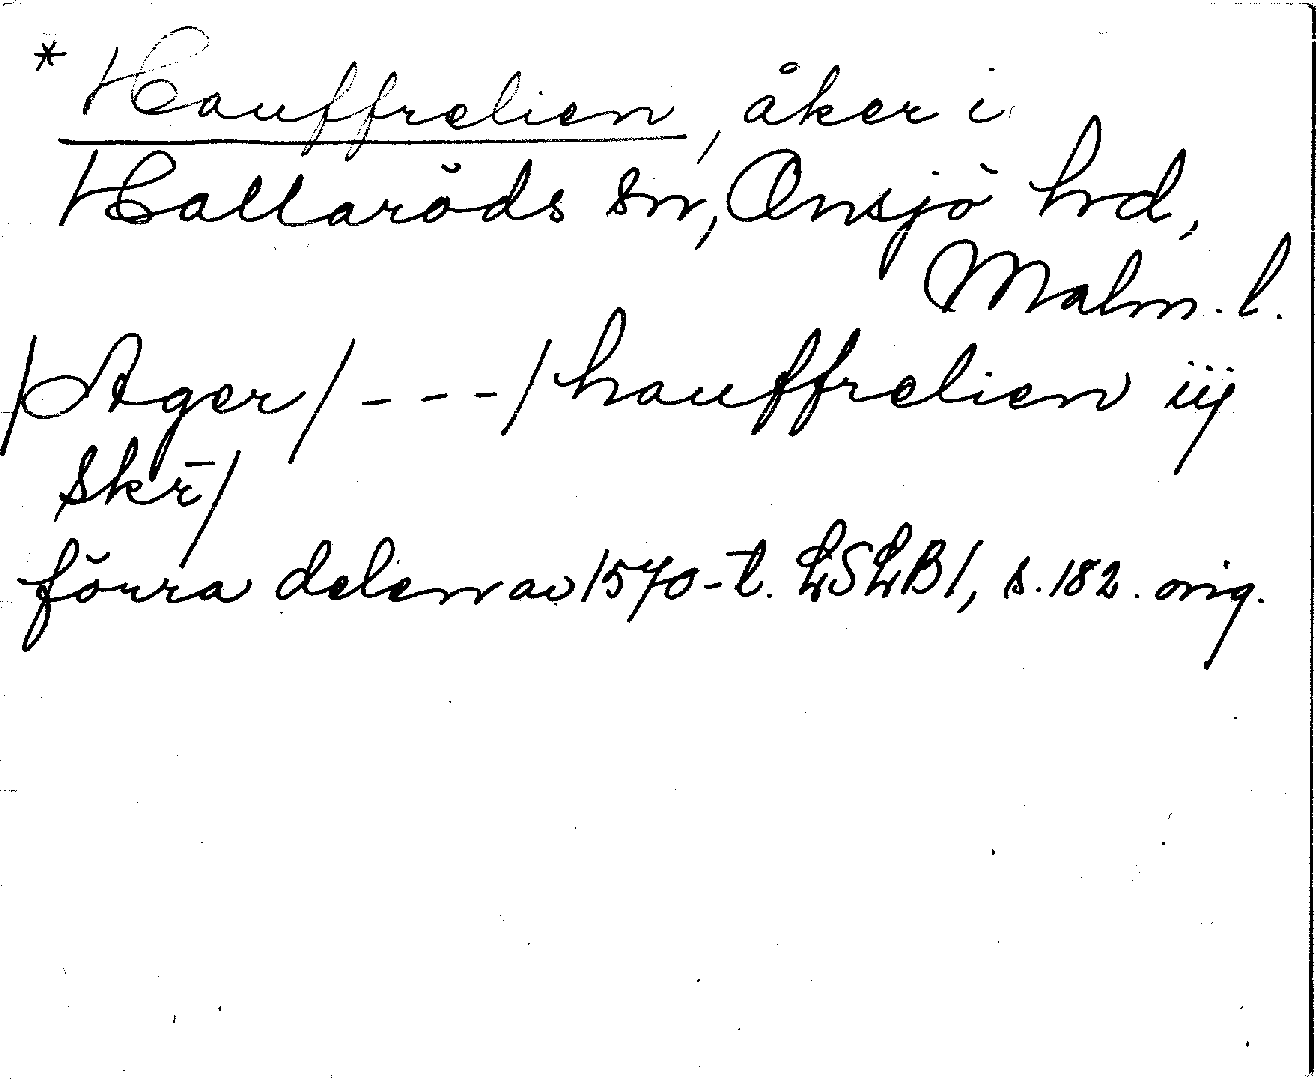 * Hauffrelien, åker i
Hallaröds sn, Onsjö hrd,
Malm. l.
/Ager/ - - - / hauffrelien iij
skr̄/
förra delen av 1570-t. LSLB1, s. 182. orig.